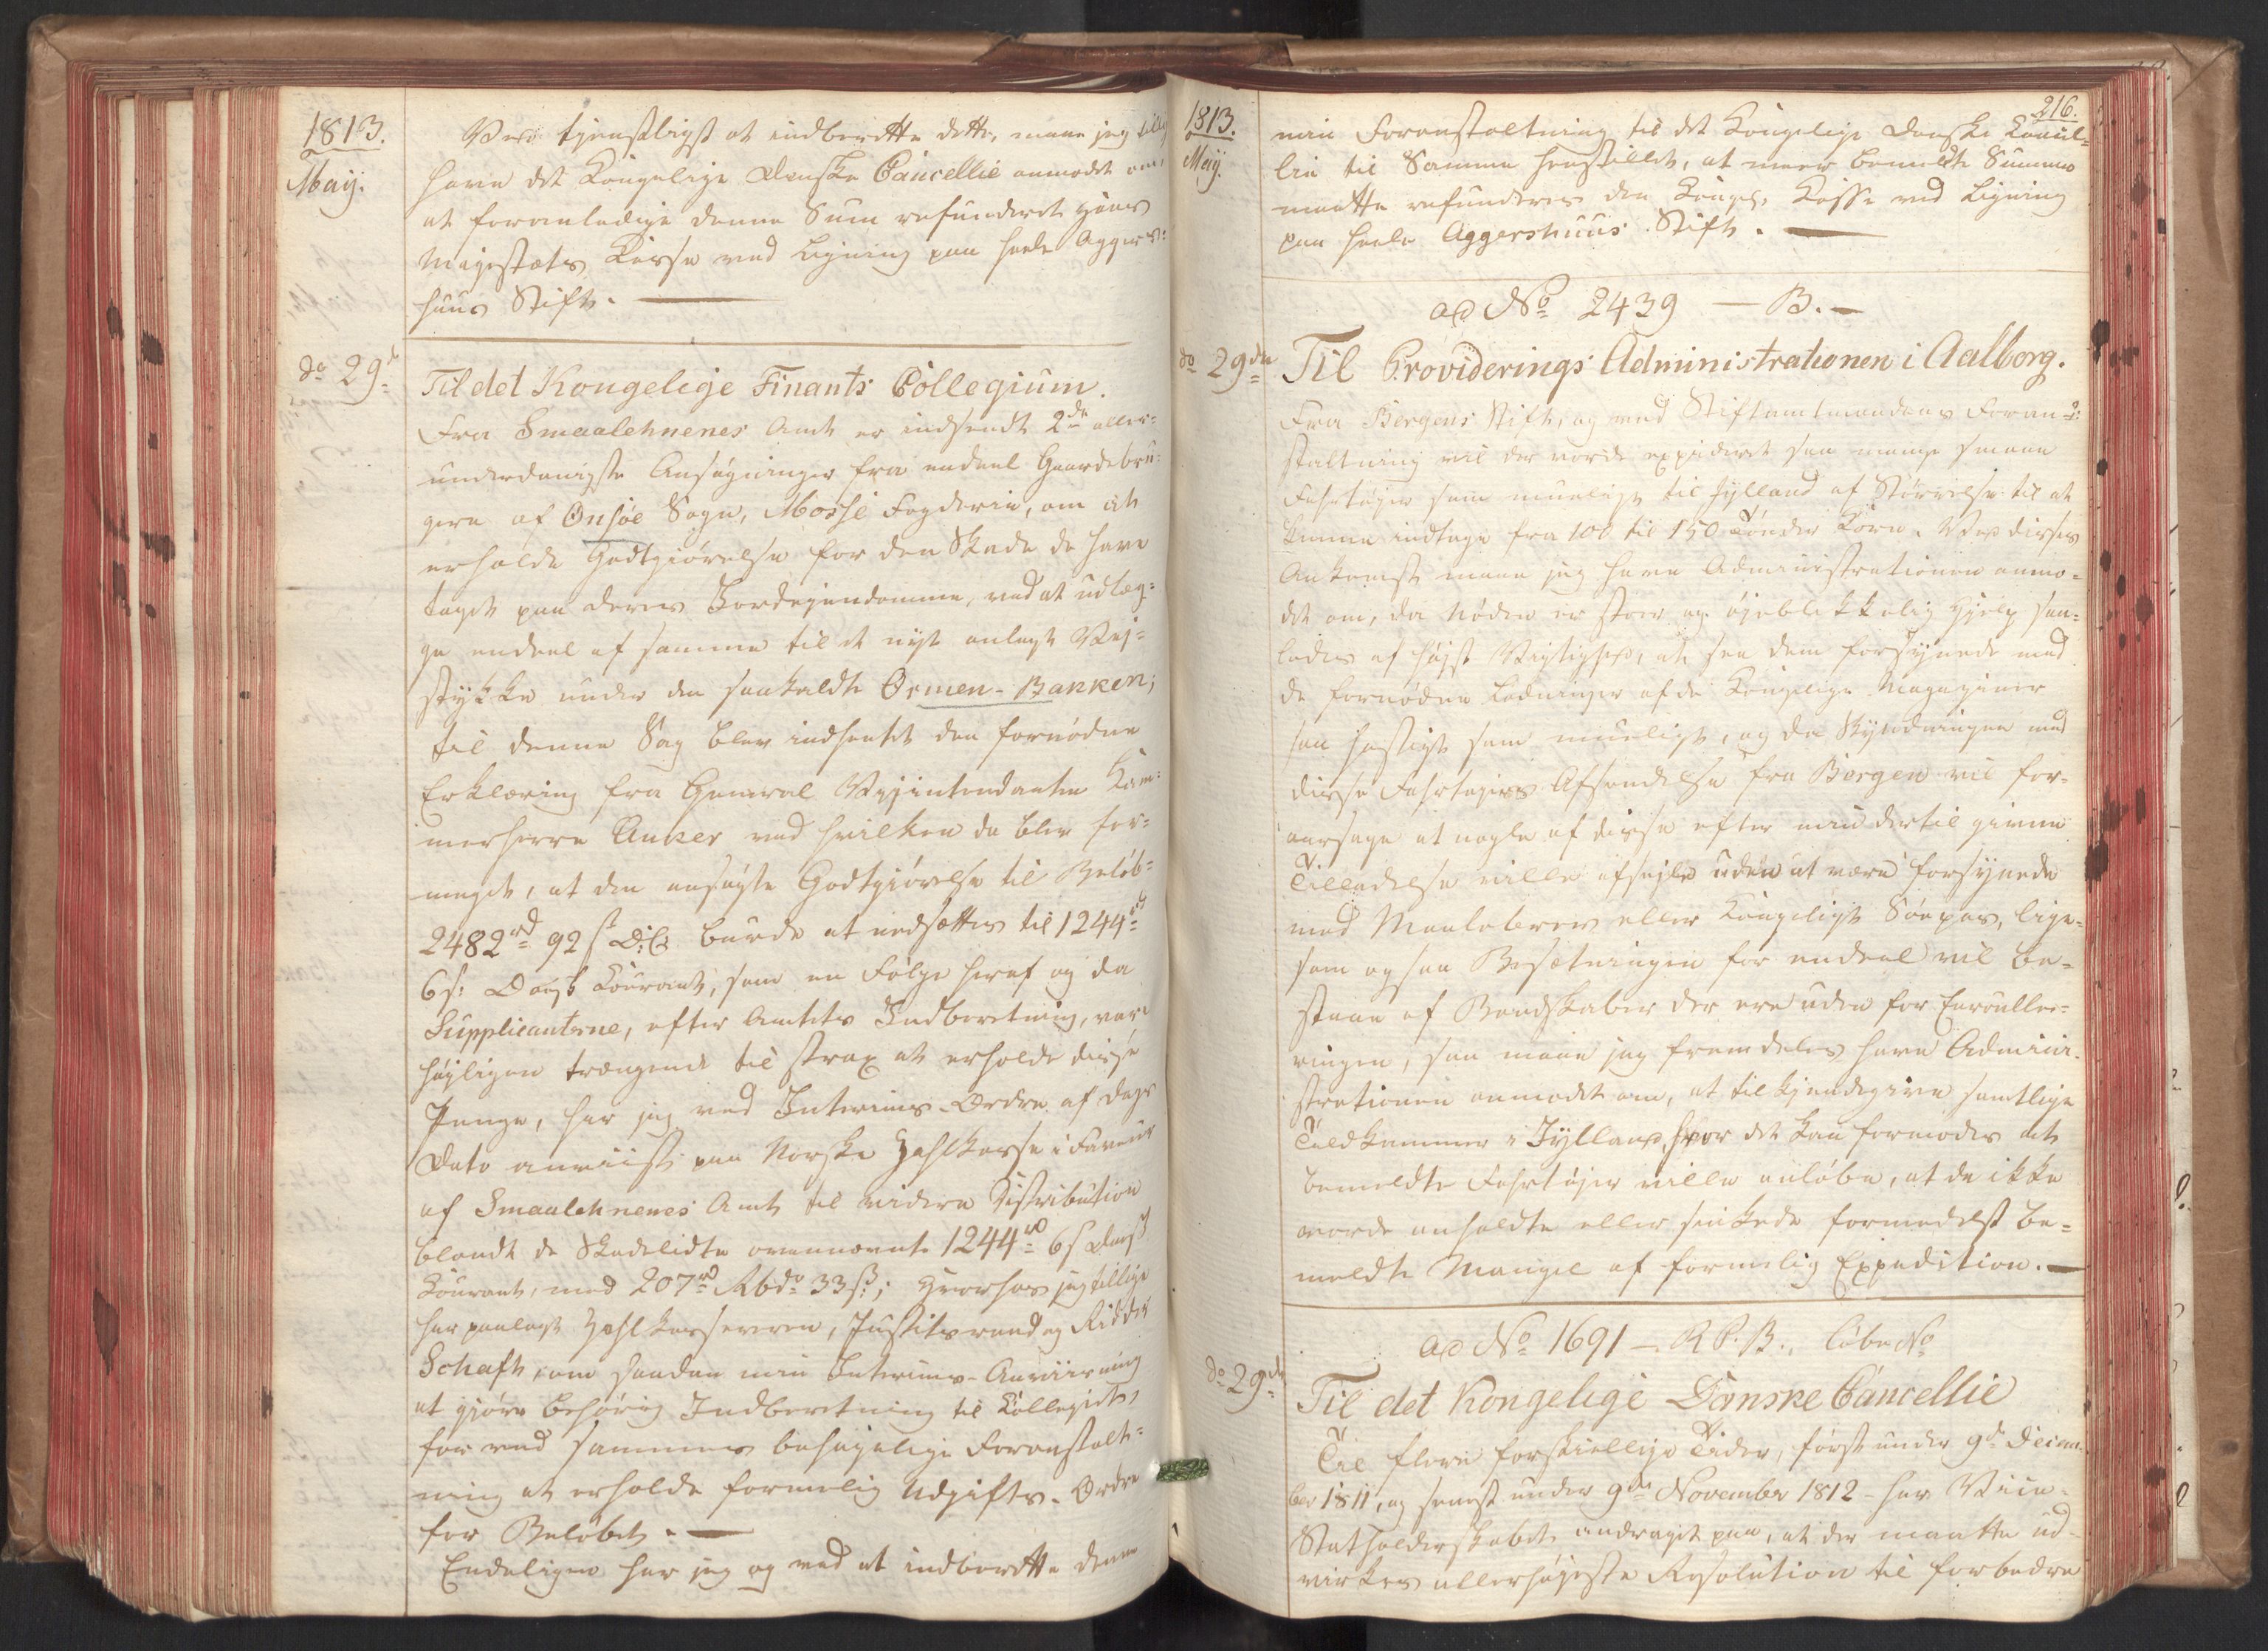 1813.
Maÿ.
Ved tjenstligst at indberette dette, maae jeg tillige
have det Kongelige Danske Cancellie anmodet om,
at foranledige denne Sum refunderet Hans
Majestæts Kasse ved Ligning paa heele Aggers-
huus Stift. —
do 29de
Til det Kongelige Finants Collegium.
Fra Smaalehnenes Amt er indsendt 2de aller-
underdanigste Ansøgninger fra endeel Gaardebru-
gere af Onsøe Sogn, Mosse Fogderie, om at
erholde Godtgiørelse for den Skade de have
taget paa deres Jordejendomme, ved at udlæg-
ge endeel af samme til et nÿt anlagt Vej-
stÿkke under den saakaldte Ormen-Bakken;
til denne Sag blev indhentet den fornødne
Erklæring fra General Vejintendanten Kam-
merherre Anker ved hvilken da blev for-
meget, at den ansøgte Godtgiørelse til Beløb
2482rd 92 s D:C: burde at nedsættes til 1244rd
6 s: Dansk Courant, som en Følge heraf og da
Supplicanterne, efter Amtets Indberetning, vare
høÿligen trængende til strax at erholde disse
Penge, har jeg ved Interims-Ordre af Dags
Dato anviist paa Norske Zahlkasse i Faveur
af Smaalehnenes Amt til videre Distribution
blandt de Skadelidte ovennævnte 1244rd 6 s Dansk
Courant, med 207rd Rbd. 33 s; hvorhos jeg tillige
har paalagt Zahlkasserer, Justitsraad og Ridder
Schaft, om saadan min Interims-Anviisning
at gjøre behørig Indberetning til Collegiet,
for ved sammes behagelige Foranstalt-
ning at erholde formelig Udgifts-Ordre
for Beløbet. —
Endeligen har jeg og ved at indberette denne
1813.
Maÿ.
216.
min Foranstaltning til det Kongelige Danske Cancel-
lie til Samme henstillet, at meer bemeldte Summe
maatte refunderes den Kongel. Kasse ved Ligning
paa heele Aggershuus Stift. —
ad No 2439 — B. —
do 29de
Til Providerings Administrationen i Aalborg.
Fra Bergens Stift, og ved Stiftamtmandens Foran-
staltning vil der vorde expederet saa mange smaae
Fahrtøjer som mueligt til Jÿlland af Størrelse til at
kunne indtage fra 100 til 150 Tønder Korn. Ved disses
Ankomst maae jeg have Administrationen anmo-
det om, da Nøden er stor og øjeblikkelig Hjelp saa-
ledes af højst Vigtighed, at see dem forsÿnede med
de fornødne Ladninger af de Kongelige Magaziner
saa hastigt som mueligt, og da Skÿndingen med
disse Fahrtøjers Afsendelse fra Bergen vil for-
aarsage at nogle af disse efter min dertil givne
Tilladelse ville afsejle uden at være forsÿnede
med Maalebrev eller Kongeligt Søepas, lige-
som ogsaa Besætningen for endeel vil be-
staae af Mandskaber der ere uden for Enroulle-
ringen, saa maae jeg fremdeles have Admini-
strationen anmodet om, at tilkjendegive samtlige
Toldkammer i Jÿlland, hvor det kan formodes at
bemeldte Fahrtøjer ville anløbe, at de ikke
vorde anholdte eller sinkede formedelst be-
meldte Mangel af formelig Expedition. —
ad No 1691 — R P. B., Løbe No
do 29de
Til det Kongelige Danske Cancellie
Til flere forskiellige Tider, først under 9de Decem-
ber 1811, og senest under 9de November 1812 — har Vice-
Statholderskabet andraget paa, at der maatte ud-
virkes allerhøjeste Resolution til forbedre